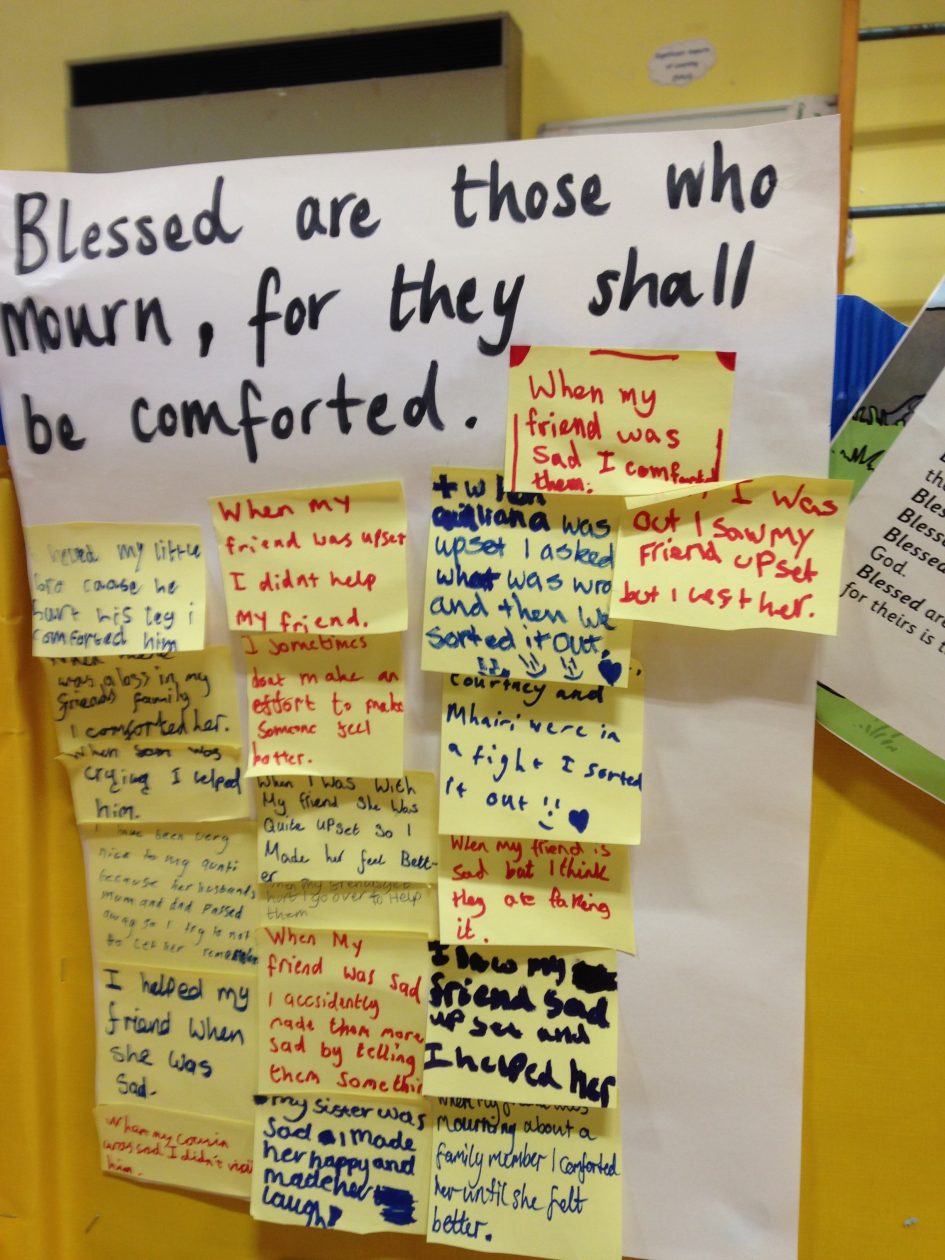 Significant Aspects
of Learning
Blessed are those who
mourn, for they shall
be comforted.
When my
friend was
sad I comforted
them.
little
bro cause he
hurt his leg i
comforted him
When there
was a loss in my
friends family
I comforted her.
When Sam was
crying I helped
him.
I have been very
nice to my aunti
because her husbands
mum and dad passed
away so I try to not
to let her remember
I helped my
friend when
she was
sad.
When my cousin
was sad I didn't visit
him.
When my
friend was upset
I didnt help
my friend.
I sometimes
dont make an
effort to make
someone feel
better.
When I was with
My friend she was
Quite upset so I
Made her feel Bett-
er
hurt I go over to Help
them
When My
friend was sad
I accsidently
made them more
sad by telling
them somethin
my sister was
sad I made
her happy and
made her
laugh!
when
was
upset I asked
what was wro
and then we
sorted it out.
Courtney and
Mhairi were in
a fight I sorted
it out
When my friend is
sad but I think
they are faking
it.
my
friend sad
upset and
I helped her
When my friend was
mourning about a
family member I comforted
her until she felt
better.
I was
out I saw my
friend upset
but I left her.
God.
Blessed are
for theirs is t